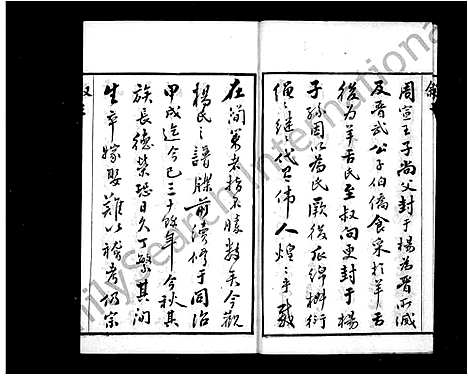 周宣王子尚父封于楊為晋所滅
及晋武公子伯僑食采於羊舌
後为羊舌氏至叔向更封于楊
子孫因以為氏厥後瓜綿椒衍
繩繩継継代有偉人煌煌乎載
在簡冊者指不勝數矣今觀
楊氏之譜牒前修于同治
甲戌迄今已三十餘年今秋其
族長德榮恐日久丁繁其间
生卒嫁娶難以稽考仍宗
FamilySearch International